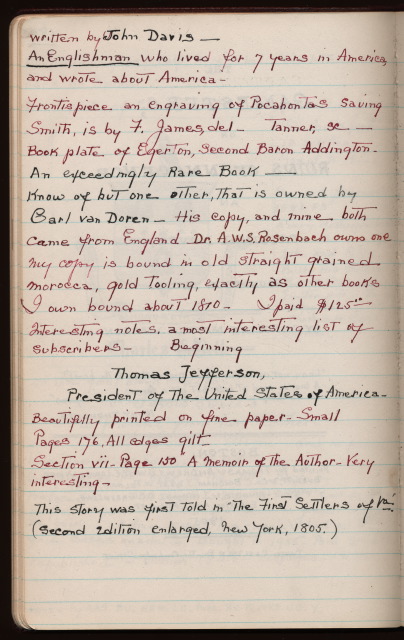 written by John Davis —
An Englishman who lived for 7 years in America,
and wrote about America -
Frontispiece an engraving of Pocahontas saving
Smith, is by F. James, del - Tanner, sc —
Book plate of Egerton, Second Baron Addington -
An exceedingly Rare Book —
Know of but one other, that is owned by
Carl van Doren — His copy, and mine both
came from England Dr. A.W.S. Rosenbach owns one
my copy is bound in old straight grained
morocca, gold tooling, exactly as other books
I own bound about 1810 - I paid $125.00
Interesting notes, a most interesting list of
subscribers - Beginning
Thomas Jefferson,
President of the United States of America -
Beautifully printed on fine paper - Small
Pages 176, All edges gilt
Section vii - Page 150 A memoir of the Author - Very
interesting -
This story was first told in "The First Settlers of Va."
(second edition enlarged, New York, 1805.)